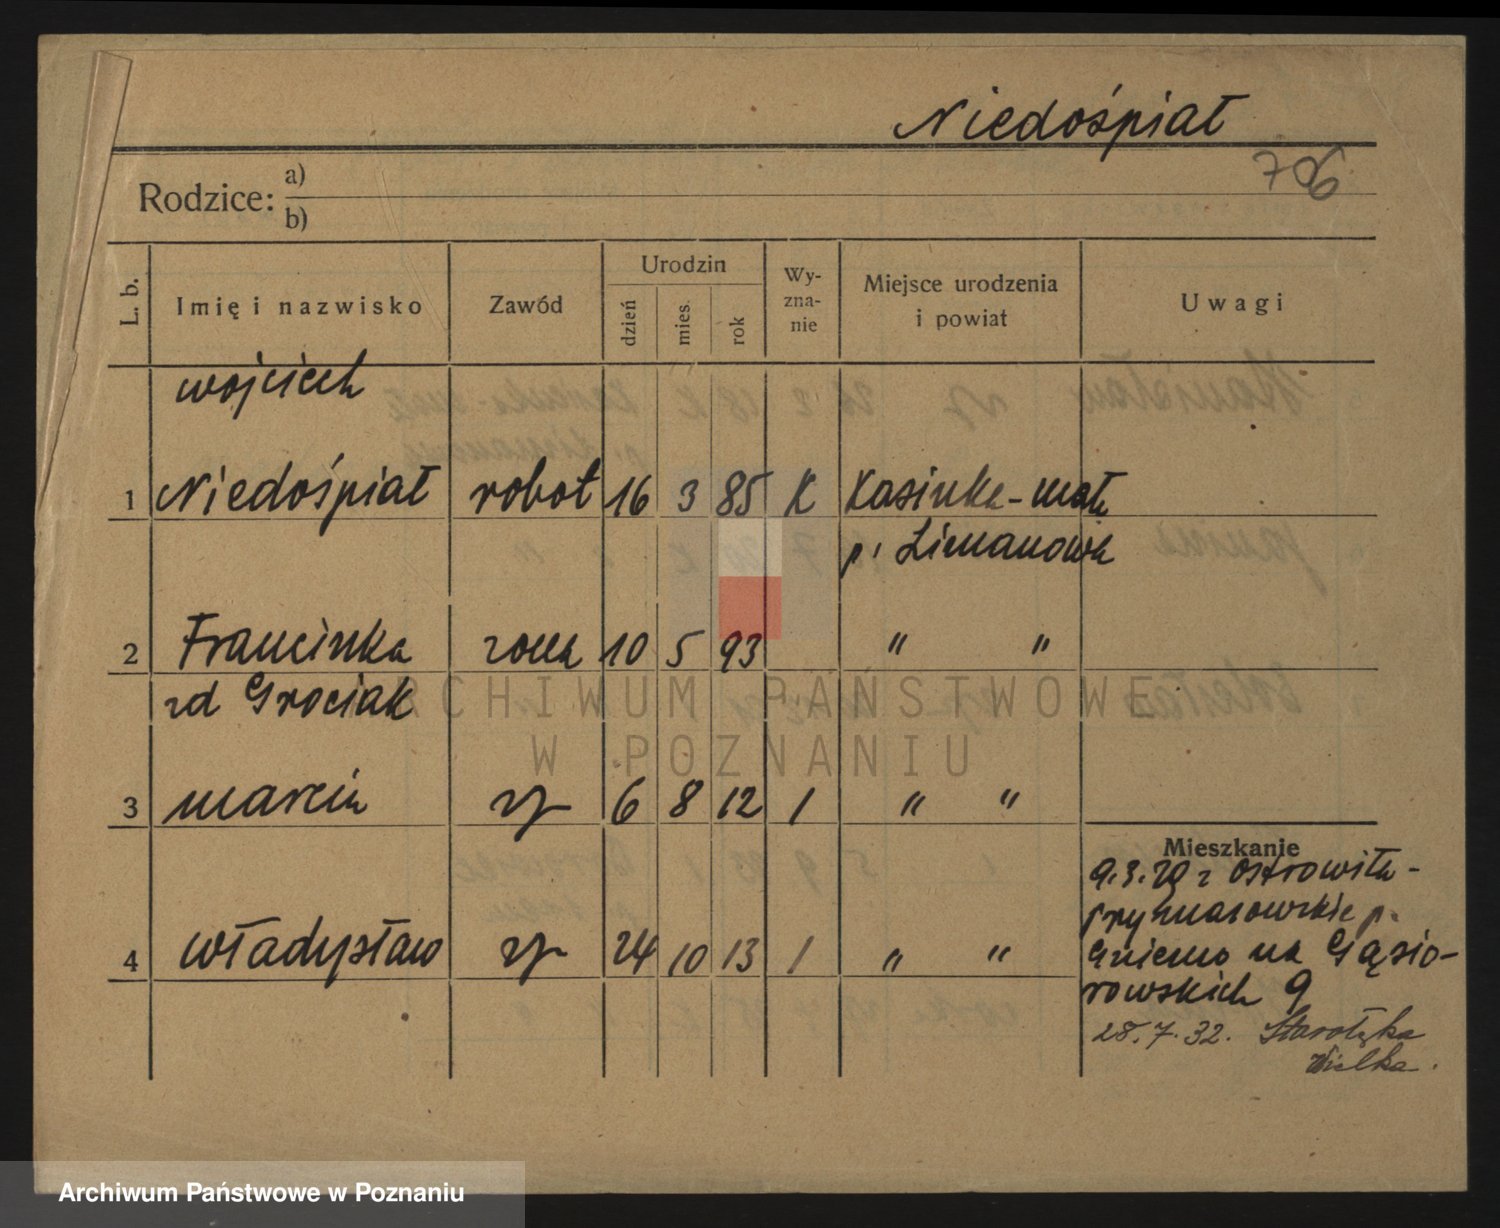 Niedośpiał
706
Rodzice: a)
b)
L. b. Imię i nazwisko Zawód Urodzin dzień mies. rok Wyznanie Miejsce urodzenia i powiat Uwagi
Wojciech
1 Niedośpiał robot 16 3 85 K Kasinka-mała
p. Limanowa
2 Francinka żona 10 5 93 " "
zd Grociak
3 Marcin 6 8 12 / " "
4 Władysław 24 10 13 / " "
Mieszkanie
9.3.29 z Ostrowita-
prymasowskie p.
Gniezno na Gąsio-
rowskich 9
28.7.32. Starołęka
Wielka.
ARCHIWUM PAŃSTWOWE
W POZNANIU
Archiwum Państwowe w Poznaniu